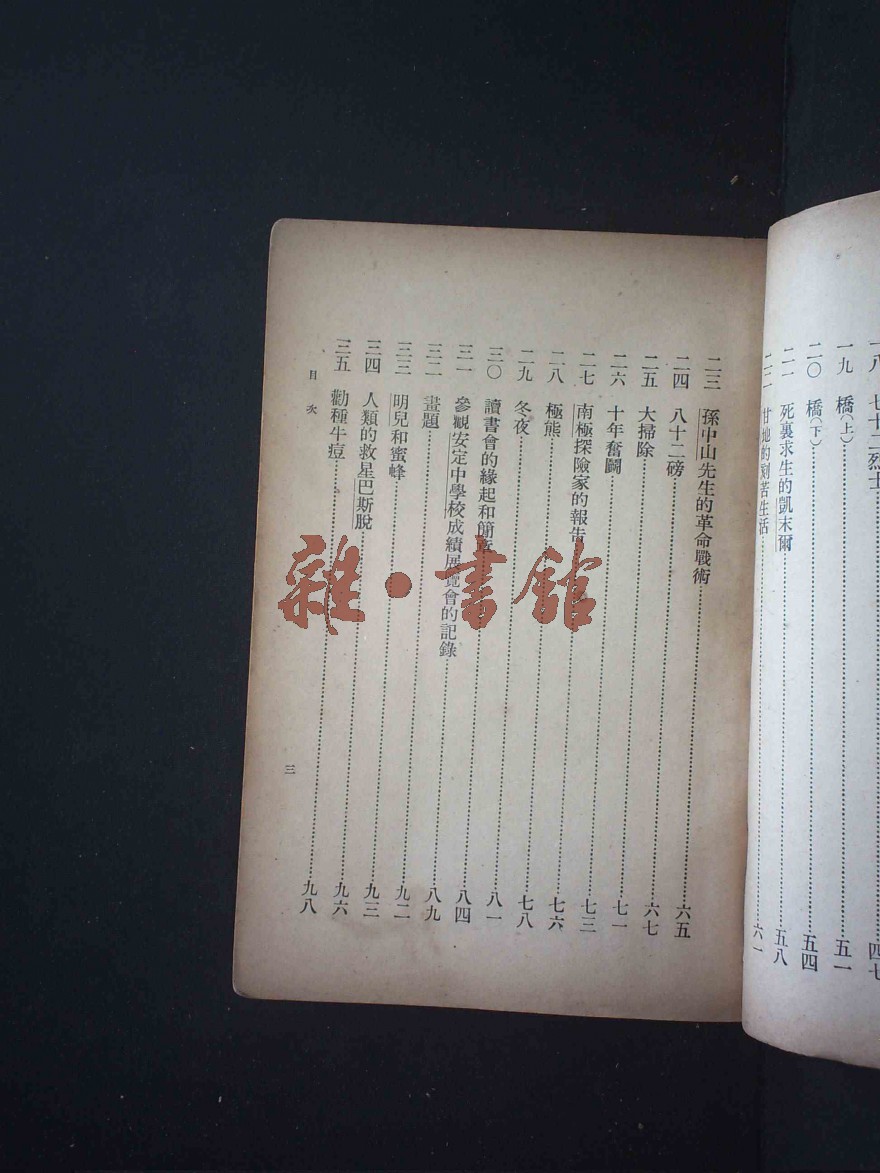 一八 七十二烈士……四七
一九 橋（上）……五一
二〇 橋（下）……五四
二一 死裏求生的凱末爾……五八
二二 甘地的刻苦生活……六一
二三 孫中山先生的革命戰術……六五
二四 八十二磅……六七
二五 大掃除……七一
二六 十年奮鬬……七三
二七 南極探險家的報告……七六
二八 極熊……七八
二九 冬夜……八一
三〇 讀書會的緣起和簡章……八四
三一 參觀安定中學校成績展覽會的記錄……八九
三二 畫題……九二
三三 明兒和蜜蜂……九三
三四 人類的救星巴斯脫……九六
三五 勸種牛痘……九八
目次
三
雜·書館